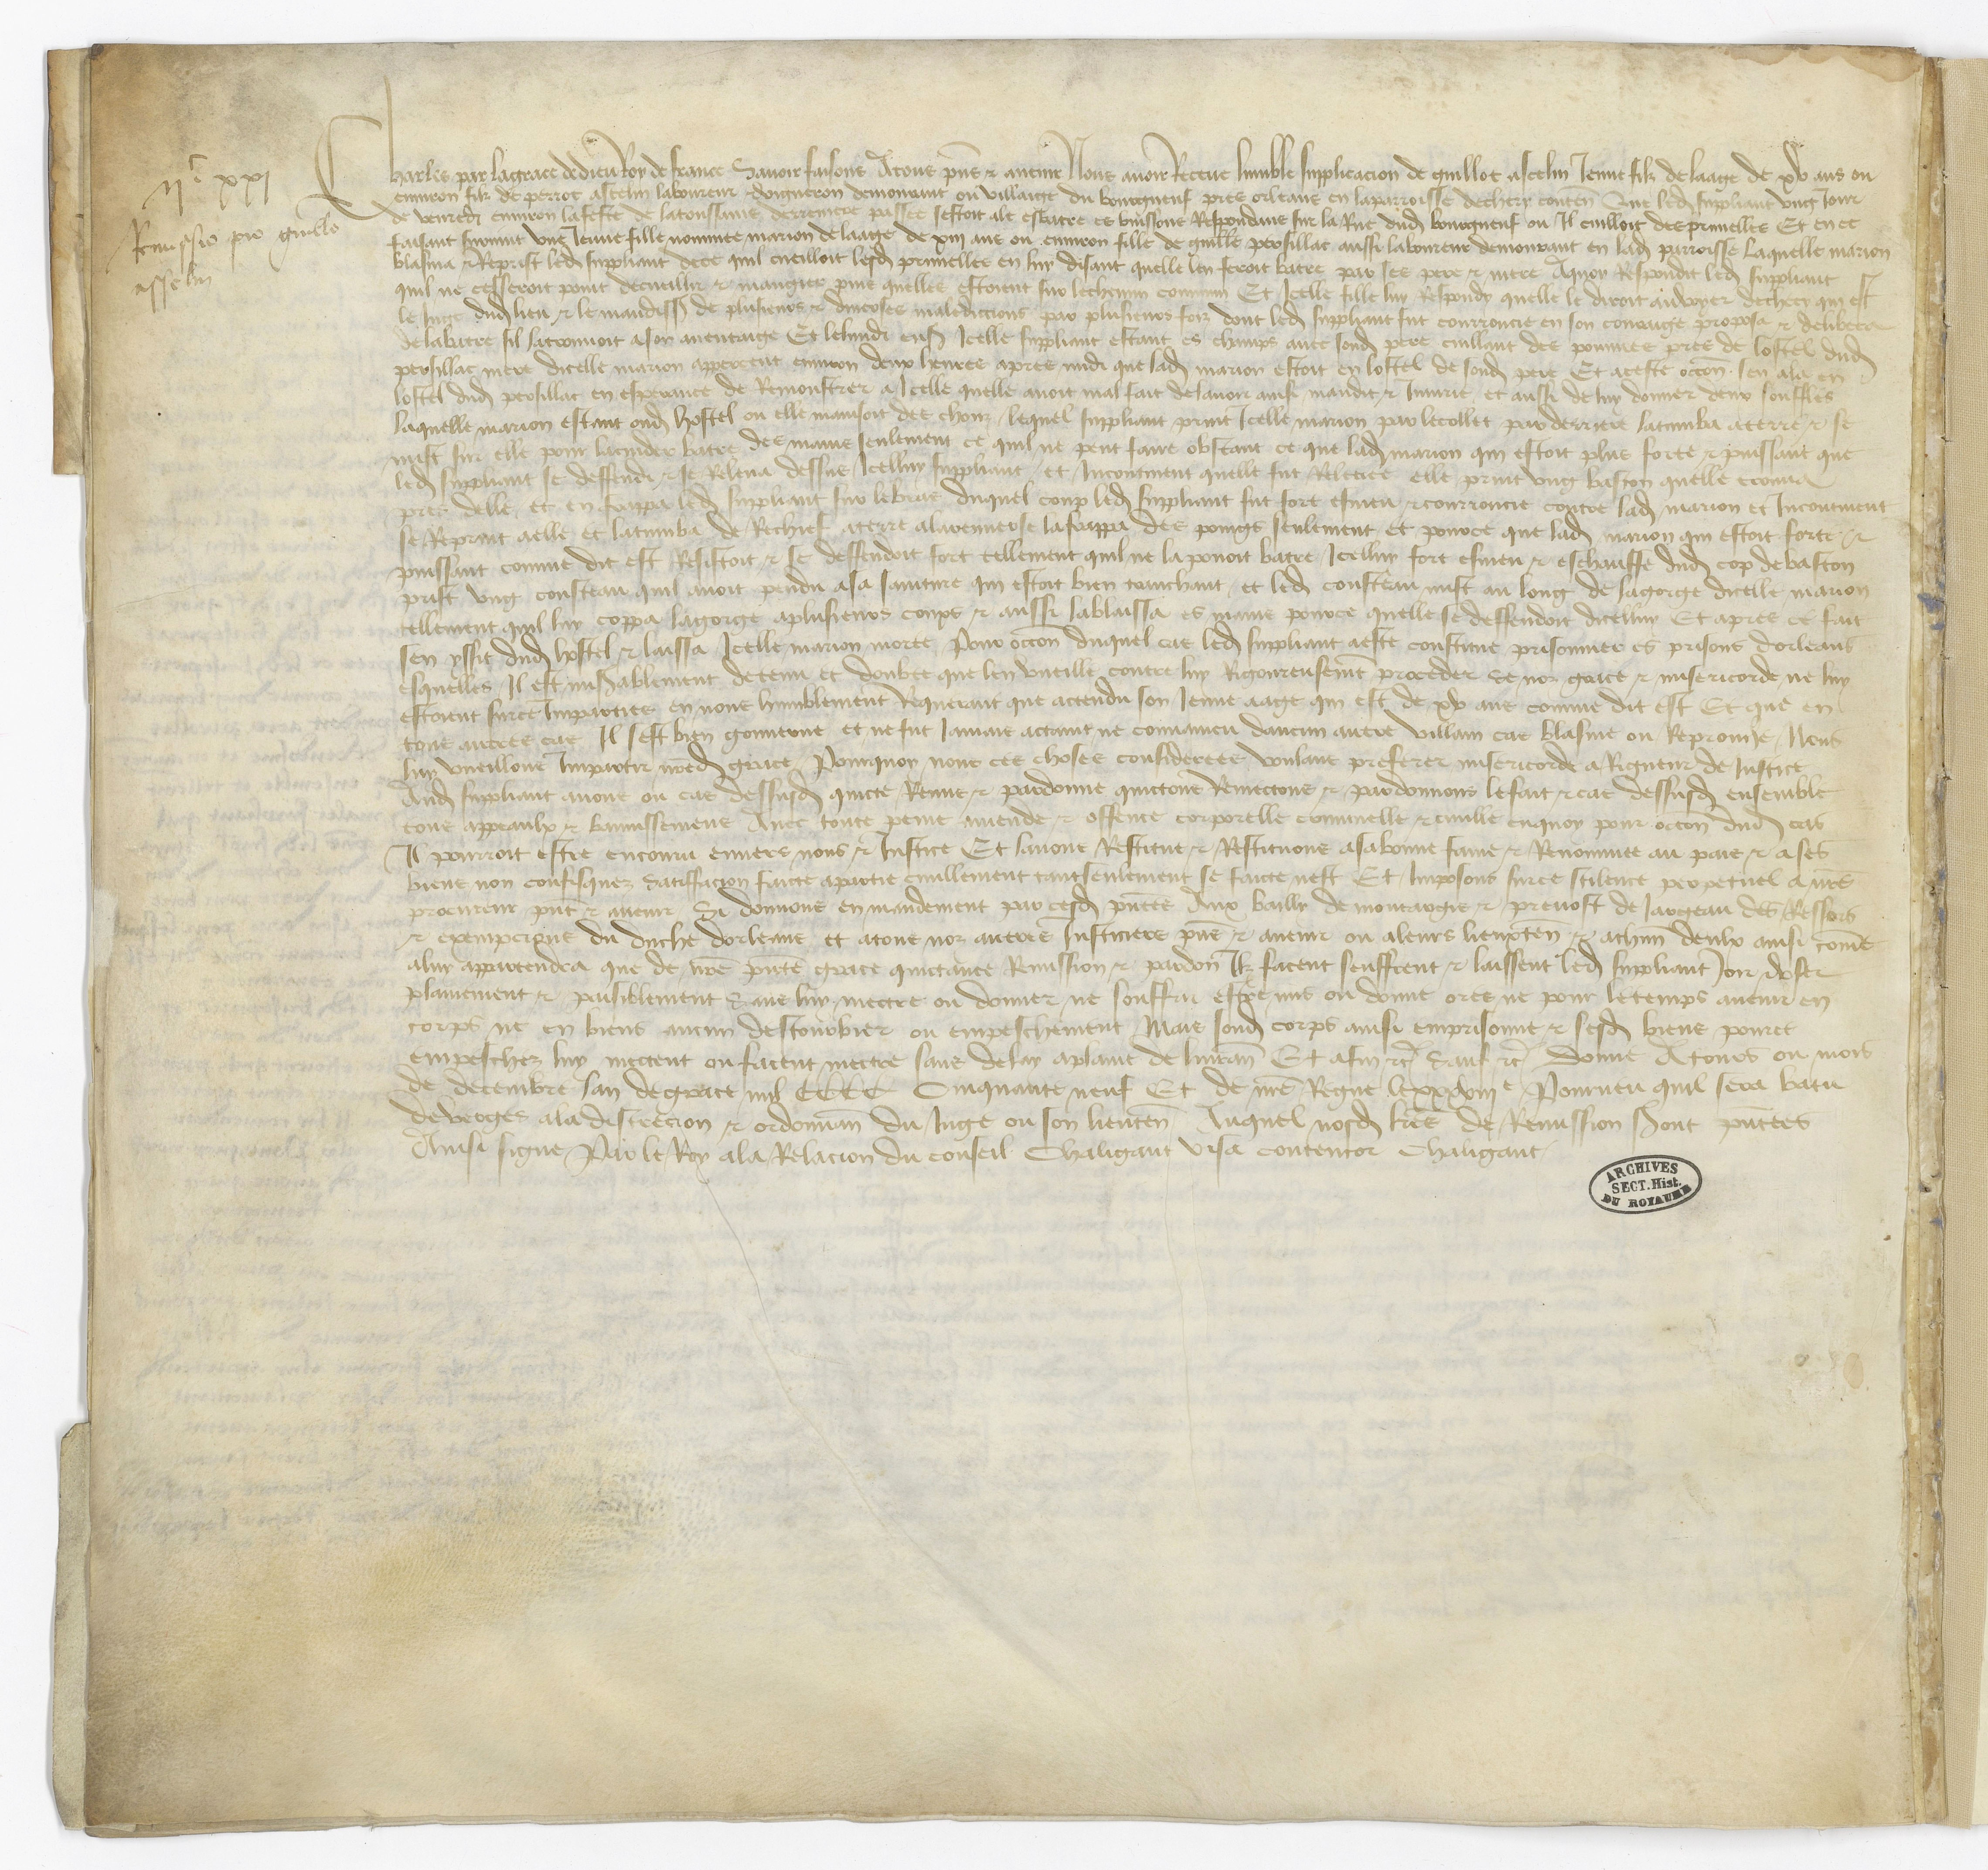 IIc XXI
Remissio pro guillo
asselin
Charles par la grace de dieu Roy de france Savoir faisons A tous pns & avenir Nous avoir Receue humble supplicacion de guillot ascelin Jeune filz de laage de xv ans ou
environ filz de perrot ascelin laboureur demourant ou villaige du bourgneuf pres orleans en la parroisse de checy conten Que led suppliant ung Jour
de venredi environ la feste de la toussains derreniere passee sestoit ale esbatre es buissons Respondans sur la Rue dud bourgneuf ou Il cuilloit des prunelles Et en ce
faisant survint une Jeune fille nommee marion de laage de xiii ans ou environ fille de guille persillac aussi laboureur demourant en lad parroisse Laquelle marion
blasma & Reprist led suppliant de ce quil cueilloit lesd prunelles en luy disant quelle len feroit batre par ses pere & mere A quoy Respondit led suppliant
quil ne cesseroit point de cueillir & mangier puis quelles estoient sur le chemin commun Et Icelle fille luy Respondy quelle le diroit au voyer de checy qui est
le Juge dud lieu & le maudisst de plusieurs & diverses maledictions par plusieurs foiz dont led suppliant fut courroucie en son couraige proposa & delibera
de la batre sil la trouvoit a son aventaige Et le lundi ens Icelle suppliant estant es champs avec sond pere cuillant des pommes pres de lostel dud
persillac mere dicelle marion apperceut environ deux heures apres midi que lad marion estoit en lostel de sond pere Et a ceste occon sen ala en
lostel dud persillac en esperance de Remonstrer a Icelle quelle avoit mal fait de lavoir ainsi maudit & Injurie et aussi de luy donner deux souffles
laquelle marion estant oud hostel ou elle mansoit des choux lequel suppliant print Icelle marion par le collet par derriere la tumba a terre & se
mist sur elle pour la cuider batre des mains seulement ce quil ne peut faire obstant ce que lad marion qui estoit plus forte & puissant que
led suppliant se deffendi & se Releva dessus Icelluy suppliant et Incontinent quelle fut Relevee elle print ung baston quelle trouva
pres delle et en frappa led suppliant sur le bras duquel coup led suppliant fut fort esmeu & courroucie contre lad marion et Incontinent
se Reprint a elle et la tumba de Rechief a terre a la renverse la frappa des poings seulement et pource que lad marion qui estoit forte &
puissant comme dit est Resistoit & se deffendoit fort tellement quil ne la povoit batre Icelluy fort esmeu & eschauffe dud cop de baston
prist ung cousteau quil avoit pendu a sa sainture qui estoit bien tranchant et led cousteau mist au long de la gorge dicelle marion
tellement quil luy coppa la gorge a plusieurs coups & aussi la blaissa es mains pource quelle se deffendoit dicelluy Et apres ce fait
sen yssit dud hostel & laissa Icelle marion morte Pour occon duquel cas led suppliant a este constitue prisonnier es prisons dorleans
esquelles Il est miserablement detenu et doubte que len vueille contre luy Rigoureusemt proceder se noz grace & misericorde ne luy
estoient sur ce Imparties en nous humblement Requerant que actendu son Jeune aage qui est de xv ans comme dit est Et que en
tous autres cas Il sest bien gouverne et ne fut Jamais actaint ne convaincu daucun autre villain cas blasme ou Reprouche Nous
luy vueillons Impartir nred grace Pourquoy nous ces choses considerees voulans preferer misericorde a Rigueur de Justice
Aud suppliant avons ou cas dessusd quicte Remis & pardonne quictons Remectons & pardonnons le fait & cas dessusd ensemble
tous appeaulx & bannissemens Avec toute peine amende & offence corporelle criminelle & civille en quoy pour occon dud cas
Il pourroit estre encouru envers nous & Justice Et lavons Restitue & Restituons a sa bonne fame & Renommee au pais & a ses
biens non confisquez satisfacion faicte a partie civillement tant seulement se faicte nest Et Imposons sur ce silence perpetuel a nre
procureur pnt & avenir Si donnons en mandement par cesd pntes Aux bailly de montargis & prevost de Jargeau des Ressors
& exempcions du duche dorleans et a tous noz autres Justiciers pns & avenir ou a leurs lieuxten & a chun deulx ainsi come
a luy appartendra que de nre pnte grace quictance Remission & pardon Ilz facent seuffrent & laissent led suppliant Joir & user
plainement & paisiblement Sans luy mectre ou donner ne souffrir estre mis ou donne ores ne pour le temps avenir en
corps ne en biens aucun destourbier ou empeschement Mais sond corps ainsi emprisonne & sesd biens pource
empeschez luy mectent ou facent mectre sans delay a plaine delivran Et afin &c Sauf &c Donne A tours ou mois
de decembre lan de grace mil CCCC Cinquante neuf Et de nre Regne le xxxviiie Pourveu quil sera batu
de verges a la discrecion & ordonnan du Juge ou son lieuten Auquel nosd lres de Remission seront pntees
Ainsi signe Par le Roy a la Relacion du conseil Chaligant visa contentor Chaligant
ARCHIVES
SECT. Hist.
DU ROYAUME